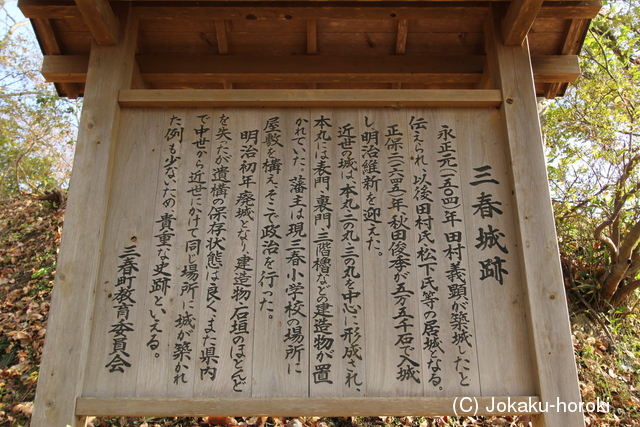 三春城跡
永正元(一五〇四)年田村義顕が築城したと
伝えられ、以後田村氏、松下氏等の居城となる。
正保二(一六四五)年、秋田俊季が五万五千石で入城
し、明治維新を迎えた。
近世の城は、本丸、二の丸、三の丸を中心に形成され、
本丸には表門、裏門、三階櫓などの建造物が置
かれていた。藩主は、現三春小学校の場所に
屋敷を構え、そこで政治を行った。
明治初年、廃城となり、建造物、石垣のほとんど
を失ったが、遺構の保存状態は良く、また県内
で中世から近世にかけて同じ場所に城が築かれ
た例も少ないため貴重な史跡といえる。
三春町教育委員会
(C) Jokaku-horoki